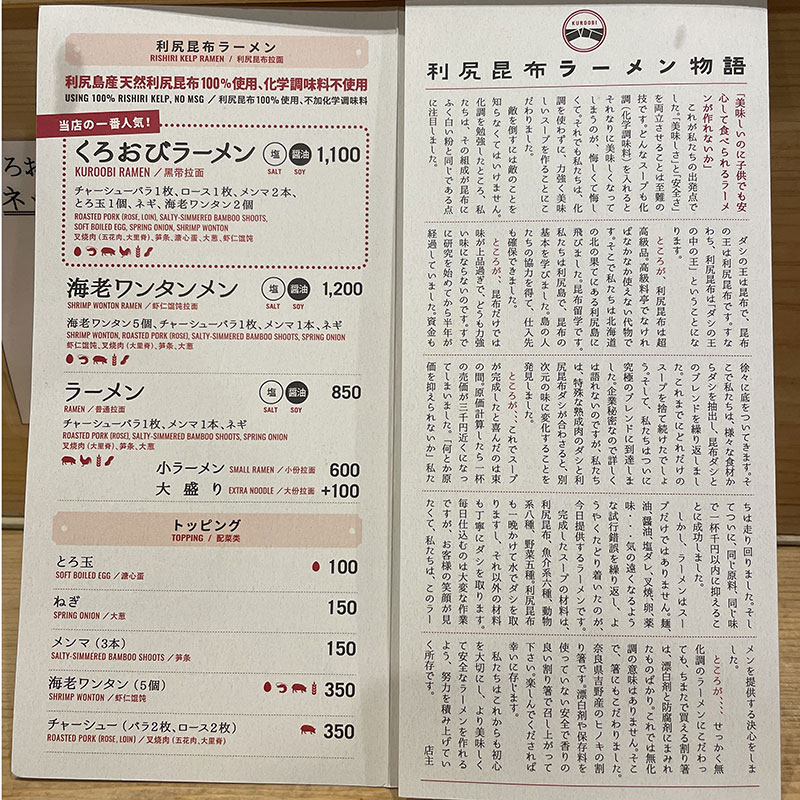 利尻昆布ラーメン
RISHIRI KELP RAMEN / 利尻昆布拉面
利尻島産天然利尻昆布100%使用、化学調味料不使用
USING 100% RISHIRI KELP, NO MSG / 利尻昆布100%使用、不加化学调味料
当店の一番人気!
くろおびラーメン 塩 醤油 1,100
KUROOBI RAMEN / 黑带拉面 SALT SOY
チャーシューバラ1枚、ロース1枚、メンマ2本、
とろ玉1個、ネギ、海老ワンタン2個
ROASTED PORK (ROSE, LOIN), SALTY-SIMMERED BAMBOO SHOOTS,
SOFT BOILED EGG, SPRING ONION, SHRIMP WONTON
叉烧肉(五花肉、大里脊)、笋条、溏心蛋、大葱、虾仁馄饨
海老ワンタンメン 塩 醤油 1,200
SHRIMP WONTON RAMEN / 虾仁馄饨拉面 SALT SOY
海老ワンタン5個、チャーシューバラ1枚、メンマ1本、ネギ
SHRIMP WONTON, ROASTED PORK (ROSE), SALTY-SIMMERED BAMBOO SHOOTS, SPRING ONION
虾仁馄饨、叉烧肉(大里脊)、笋条、大葱
ラーメン 塩 醤油 850
RAMEN / 普通拉面 SALT SOY
チャーシューバラ1枚、メンマ1本、ネギ
ROASTED PORK (ROSE), SALTY-SIMMERED BAMBOO SHOOTS, SPRING ONION
叉烧肉(大里脊)、笋条、大葱
小ラーメン SMALL RAMEN / 小份拉面 600
大盛り EXTRA NOODLE / 大份拉面 +100
トッピング
TOPPING / 配菜类
とろ玉 100
SOFT BOILED EGG / 溏心蛋
ねぎ 150
SPRING ONION / 大葱
メンマ(3本) 150
SALTY-SIMMERED BAMBOO SHOOTS / 笋条
海老ワンタン(5個) 350
SHRIMP WONTON / 虾仁馄饨
チャーシュー(バラ2枚、ロース2枚) 350
ROASTED PORK (ROSE, LOIN) / 叉烧肉(五花肉、大里脊)
KUROOBI
利尻昆布ラーメン物語
「美味しいのに子供でも安
心して食べられるラーメ
ンが作れないか」
これが私たちの出発点で
した。「美味しさ」と「安全さ」
を両立させることは至難の
技です。どんなスープも化
調(化学調味料)を入れると
それなりに美味しくなって
しまうのが、悔しくて悔し
くて。それでも私たちは、化
調を使わずに、力強く美味
しいスープを作ることにこ
だわりました。
敵を倒すには敵のことを
知らなくてはいけません。
化調を勉強したところ、私
たちは、その組成が昆布に
ふく白い粉と同じである点
に注目しました。
ダシの王は昆布で、昆布
の王は利尻昆布です。すな
わち、利尻昆布は「ダシの王
の中の王」ということにな
ります。
ところが、利尻昆布は超
高級品。高級料亭でなけれ
ばなかなか使えない代物で
す。そこで私たちは北海道
の北の果てにある利尻島に
飛びました。昆布留学です。
私たちは利尻島で、昆布の
基本を学びました。島の人
たちの協力を得て、仕入先
も確保できました。
ところが、昆布だけでは
味が上品過ぎで、どうも力強
い味にならないのです。すで
に研究を始めてから半年が
経過していました。資金も
徐々に底をついてきます。そ
こで私たちは、様々な食材か
らダシを抽出し、昆布ダシと
のブレンドを繰り返しまし
た。これまでにどれだけの
スープを捨て続けたでしょ
う。そして、私たちはついに
究極のブレンドに到達しま
した。企業秘密なので詳しく
は語れないのですが、私たち
は、特殊な熟成肉のダシと利
尻昆布ダシが合わさると、別
次元の味に変化することを
発見しました。
ところが、これでスープ
が完成したと喜んだのは束
の間。原価計算したら一杯
の売価が三千円近くになっ
てしまいました。「何とか原
価を抑えられないか」私た
ちは走り回りました。そし
てついに、同じ原料、同じ味
で一杯千円以内に抑えるこ
とに成功しました。
しかし、ラーメンはスー
プだけではありません。麺、
油、醤油、塩ダレ、叉焼、卵、薬
味・・気の遠くなるよう
な試行錯誤を繰り返し、よ
うやくたどり着いたのが、
今日提供するラーメンです。
完成したスープの材料は、
利尻昆布、魚介系六種、動物
系八種、野菜五種。利尻昆布
も一晩かけて水でダシを取
りますし、それ以外の材料
も丁寧にダシを取ります。
毎日仕込むのは大変な作業
ですが、お客様の笑顔が見
たくて、私たちは、このラー
メンを提供する決心をしま
した。
ところが・・、せっかく無
化調のラーメンにこだわっ
ても、ちまたで買える割り箸
は、漂白剤と防腐剤にまみれ
たものばかり。これでは無化
調の意味はありません。そこ
で、箸にもこだわりました。
奈良県吉野産のヒノキの割
り箸です。漂白剤や保存料を
使っていない安全で香りの
良い割り箸で召し上がって
下さい。楽しんでくだされば
幸いに存じます。
私たちはこれからも初心
を大切にし、より美味しく
て安全なラーメンを作れる
よう、努力を積み上げてい
く所存です。
店主